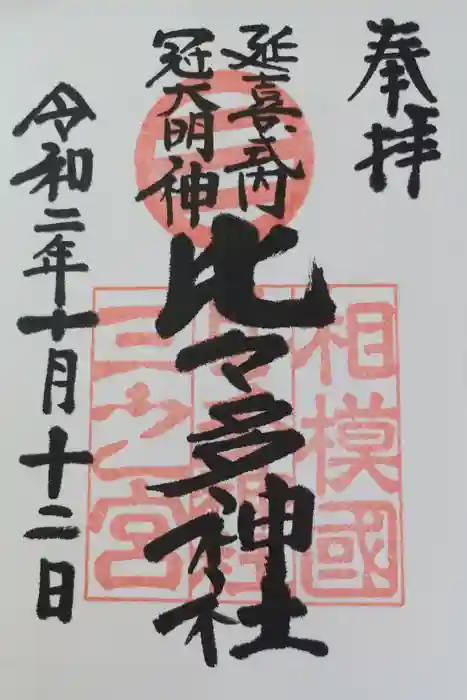 奉拝
延喜式内
冠大明神
比々多神社
令和二年十月十二日
相模國
三之宮